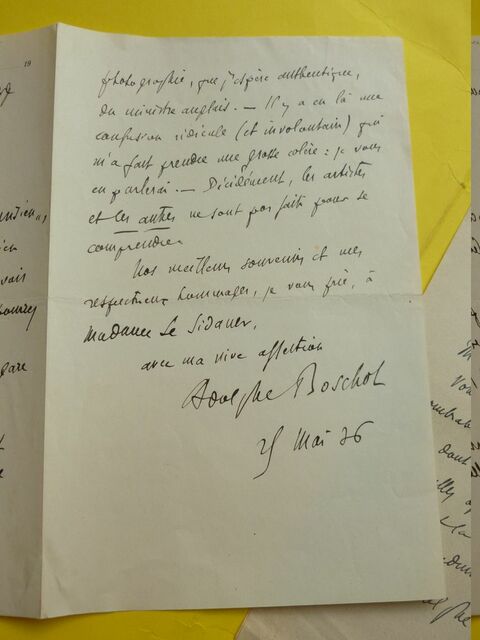 19
photographie, que j'espère authentique,
du ministre anglais. — Il y a eu là une
confusion ridicule (et involontaire) qui
m'a fait prendre une grosse colère : je vous
en parlerai. — Décidément, les artistes
et les autres ne sont pas faits pour se
comprendre.
Nos meilleurs souvenirs et mes
respectueux hommages, je vous prie, à
Madame Le Sidaner,
avec ma vive affection
Adolphe Boschot
25 Mai 36